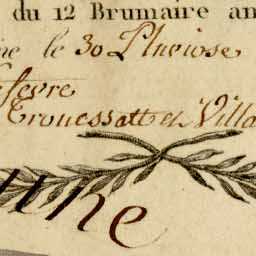 du 12 Brumaire an
le 30 Pluviose
efevre
Trouessart et Villa
une